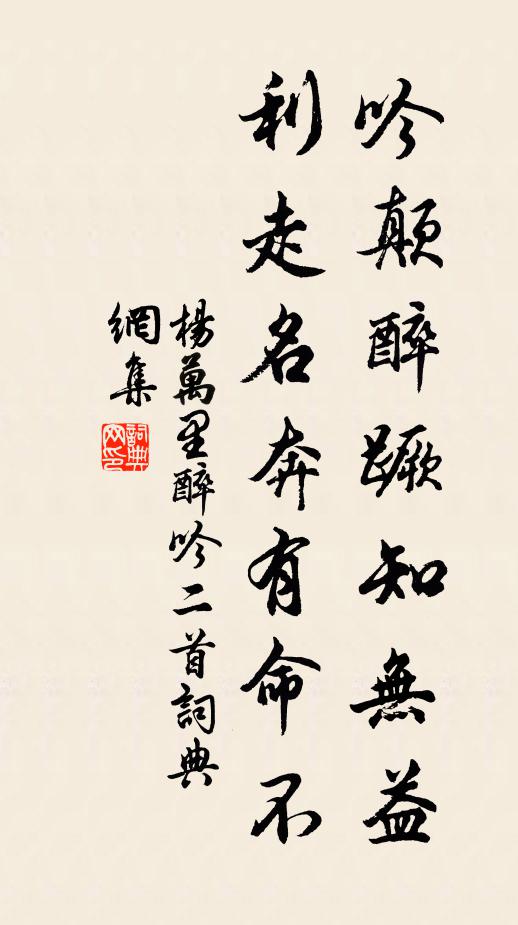 吟顛醉蹶知無益
利走名奔有命不
楊萬里醉吟二首詞典
網集
詞典网印